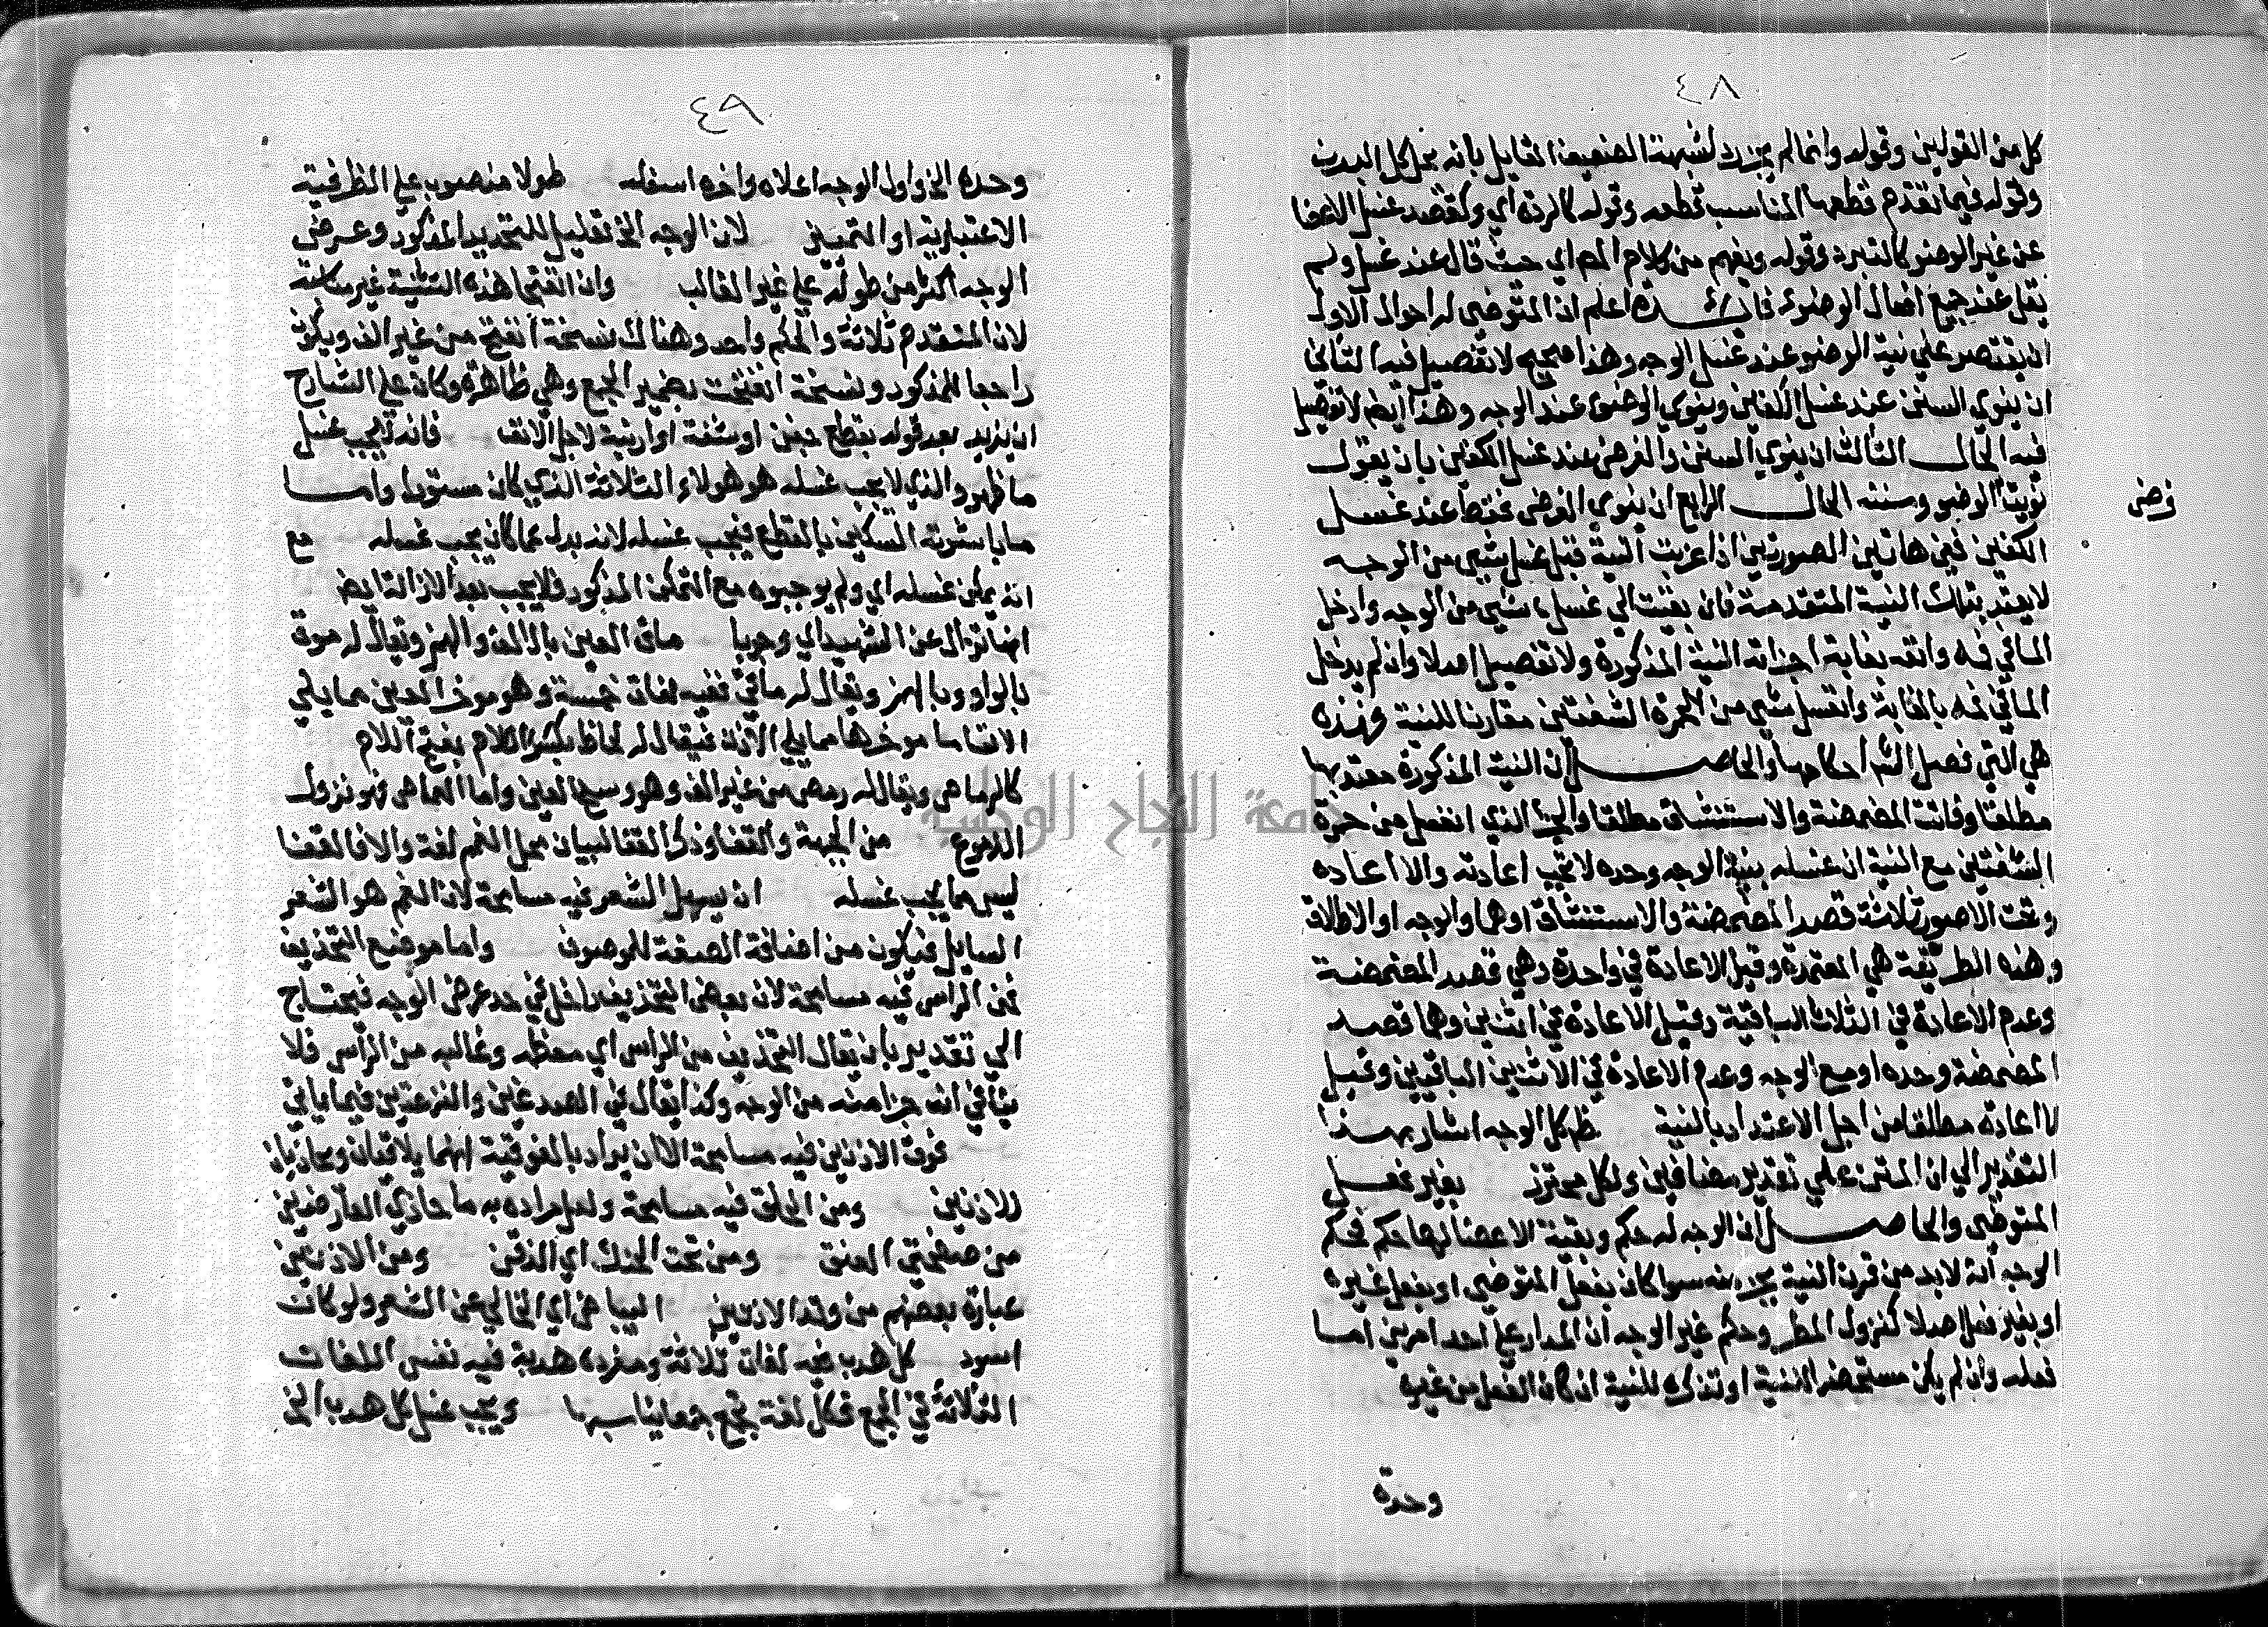 ٤٨
كل من القولين وقوله وانما لم يجز لشبهة الضعيف القايل بانه يحل كل البدن
وقوله فيما تقدم قطعها المناسب قطعه وقوله كالردة اي وكقصد غسل الاعضا
عن غير الوضو كالتبرد وقوله ويفهم من كلام المص اي حيث قال عند غسل ولم
يقل عند جميع افعال الوضوء فايدة اعلم ان المتوضي له احوال الاول
ان يقتصر علي نية الوضو عند غسل الوجه وهذا صحيح لا تفصيل فيه الثاني
ان ينوي السنن عند غسل الكفين وينوي الوضوء عند الوجه وهذا ايضا لا تفصيل
فيه الحال الثالث ان ينوي السنن والفرض عند غسل الكفين بان يقول
نويت الوضو وسننه الحال الرابع ان ينوي الفرض فقط عند غسل
فرض
الكفين ففي هاتين الصورتين اذا عزبت النية قبل غسل شيي من الوجه
لا يعتد بتلك النية المتقدمة فان بقيت الي غسل شيي من الوجه وادخل
الما في فيه وانفه بغابة اجزاته النية المذكورة ولا تفصيل اصلا وان لم يدخل
الما في فمه بالغابة وانغسل شيي من حمرة الشفتين مقارنا للنية فهذه
هي التي فصل الشم احكامها والحاصل ان النية المذكورة معتد بها
مطلقا وفاتت المضمضة والاستنشاق مطلقا والجزء الذي انغسل من حمرة
الشفتين مع النية ان غسله بنية الوجه وحده لا تجب اعادته والا اعاده
وبقت الا صورة ثلاثة قصد المضمضة والاستنشاق او هما والوجه او الاطلاق
وهذه الطريقة هي المعتمدة وقيل الاعادة في واحدة وهي قصد المضمضة
وعدم الاعادة في الثلاث الباقية وقيل الاعادة في اثنين وهما قصد
المضمضة وحده او مع الوجه وعدم الاعادة في الاثنين الباقيين وقيل
لا اعادة مطلقا من اجل الاعتداد بالنية كل الوجه اشار بهذا
التقدير الي ان المتن علي تقدير مضافين ولكل محترز بغير فعل
المتوضي والحاصل ان الوجه له حكم وبقية الاعضا لها حكم فحكم
الوجه انه لا بد من قرن النية بجزء منه سوا كان بفعل المتوضي او بفعل غيره
او بغير فعل اصلا كنزول المطر وحكم غير الوجه ان المدار علي احد امرين اما
فعله وان لم يكن مستحضر للنية او تذكره للنية ان كان الفعل من غيره
وحده
٤٩
وحده الخ واول الوجه اعلاه واخره اسفله طولا منصوب علي الظرفية
الاعتبارية او التمييز لان الوجه الخ تعليل للتحديد المذكور وعرض
الوجه اكثر من طوله علي غير الغالب وان انفتحا هذه التثنية غير ملائمة
لان المتقدم ثلاثة والحكم واحد وهناك نسخة انفتح من غير الف ويكون
راجعا للمذكور ونسخة انفتحت بضمير الجمع وهي ظاهرة وكان علي الشارح
ان يزيد بعد قوله بقطع جفن او شفة او ارنبة لاجل الانف فانه لا يجب غسل
ما ظهر والذي لا يجب غسله هو هولاء الثلاثة الذي كان مستورا واما
ما باشرته السكين بالقطع فيجب غسله لانه بدل عما كان يجب غسله مع
انه يمكن غسله اي ولم يوجبوه مع التمكن المذكور فلا يجب بعد الازالة ايضا
انها تزال عن الشهيد اي وجوبا ماق العين بالالف والهمز ويقال له موق
بالواو وبالهمز ويقال له ماقي ففيه لغات خمسة وهو موخر العين مما يلي
الانف اما موخرها مما يلي الاذن فيقال له لحاظ بكسر اللام بفتح اللام
كالرماص ويقال له رمص من غير الف وهو وسخ العين واما الغماص فهو نزول
الدموع من الجبهة والقفا وذكر القفا لبيان محل الغم لغة والا فالقفا
ليس مما يجب غسله ان يسيل الشعر فيه مسامحة لان الغم هو الشعر
السايل فيكون من اضافة الصفة للموصوف واما موضع التحذيف
فمن الراس فيه مسامحة لان بعض التحذيف داخل في حد عرض الوجه فيحتاج
الي تقدير بان يقال التحذيف من الراس اي معظمه وغالبه من الراس فلا
ينافي انه جزا منه من الوجه وكذا يقال في الصدغين والنزعتين فيما ياتي
فوق الاذنين فيه مسامحة الا ان يراد بالفوقية انهما يلاقيان ويحاذيان
للاذنين ومن الحلق فيه مسامحة ولعل مراده به ما حاذي العارضين
من صفحتي العنق ومن تحت الحنك اي الذقن ومن الاذنين
عبارة بعضهم من وتد الاذنين البياض اي الخالي عن الشعر ولو كان
اسود كل هدب فيه لغات ثلاثة ومفرده هدبة فيه نفس اللغات
الثلاثة في الجمع فكل لغة تجمع جمعا يناسبها ويجب غسل كل هدب الخ
جامعة النجاح الوطنية